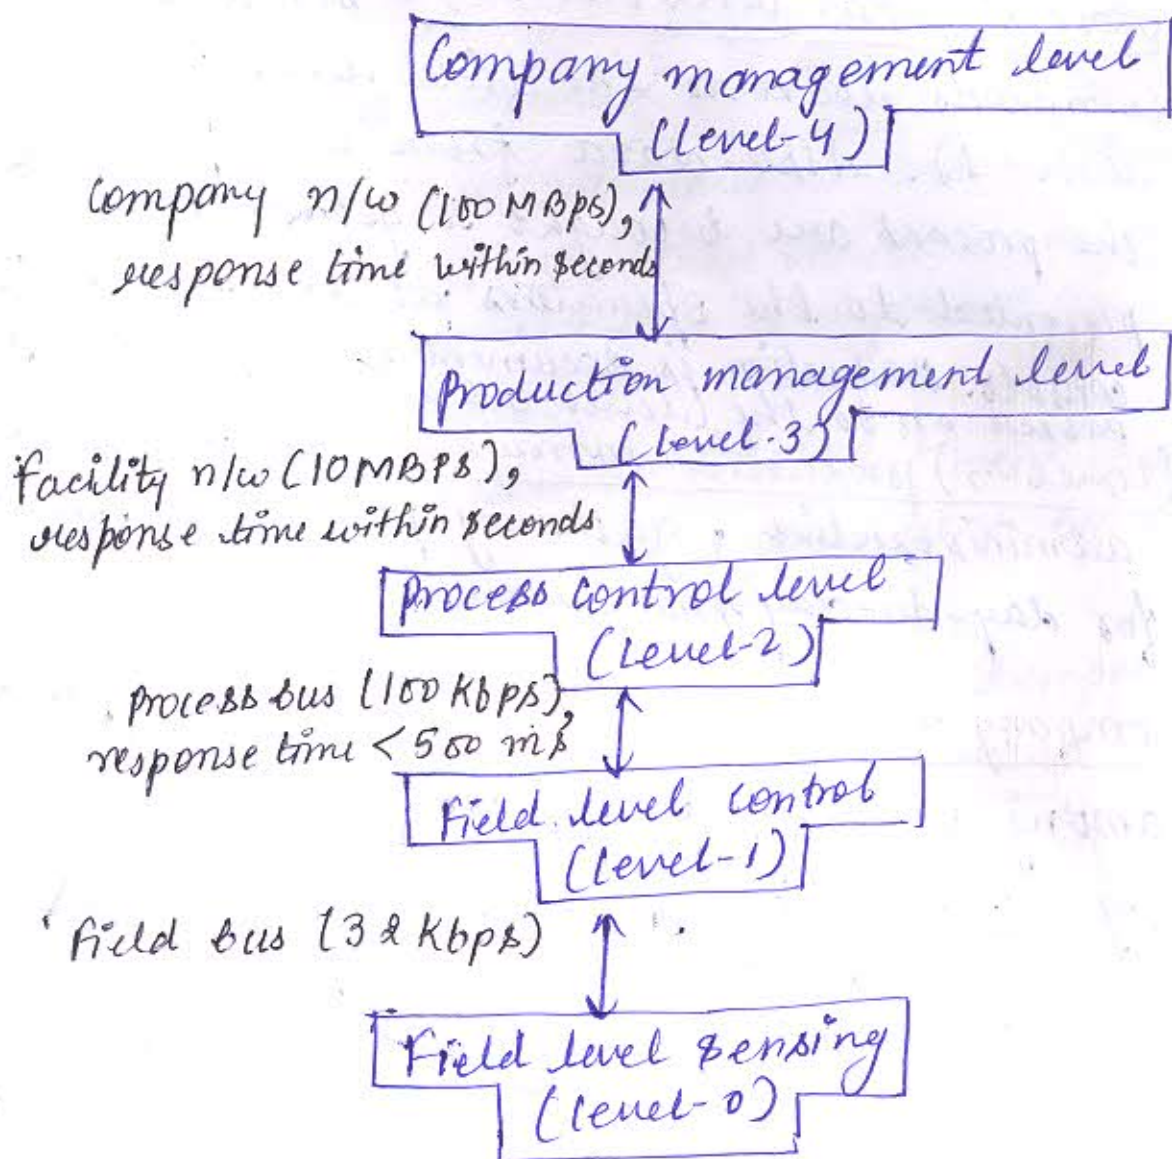 Company management level
(Level-4)
Company n/w (100 MBps),
response time within seconds
Production management level
(Level-3)
Facility n/w (10 MBPS),
response time within seconds
Process control level
(Level-2)
Process bus (100 Kbps),
response time < 500 ms
Field level control
(Level-1)
Field bus (32 Kbps)
Field level sensing
(Level-0)